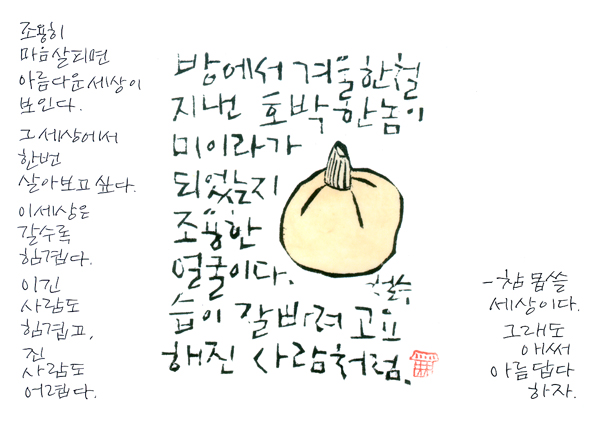 조용히
마음살피면
아름다운세상이
보인다.
그세상에서
한번
살아보고싶다.
이세상은
갈수록
힘겹다.
이긴
사람도
힘겹고,
진
사람도
어렵다.
방에서 겨울한철
지낸 호박한놈이
미이라가
되었는지
조용한
얼굴이다.
철수
숨이 갈바려 고요
해진 사람처럼.
-참 몹쓸
세상이다.
그래도
애써
아름답다
하자.